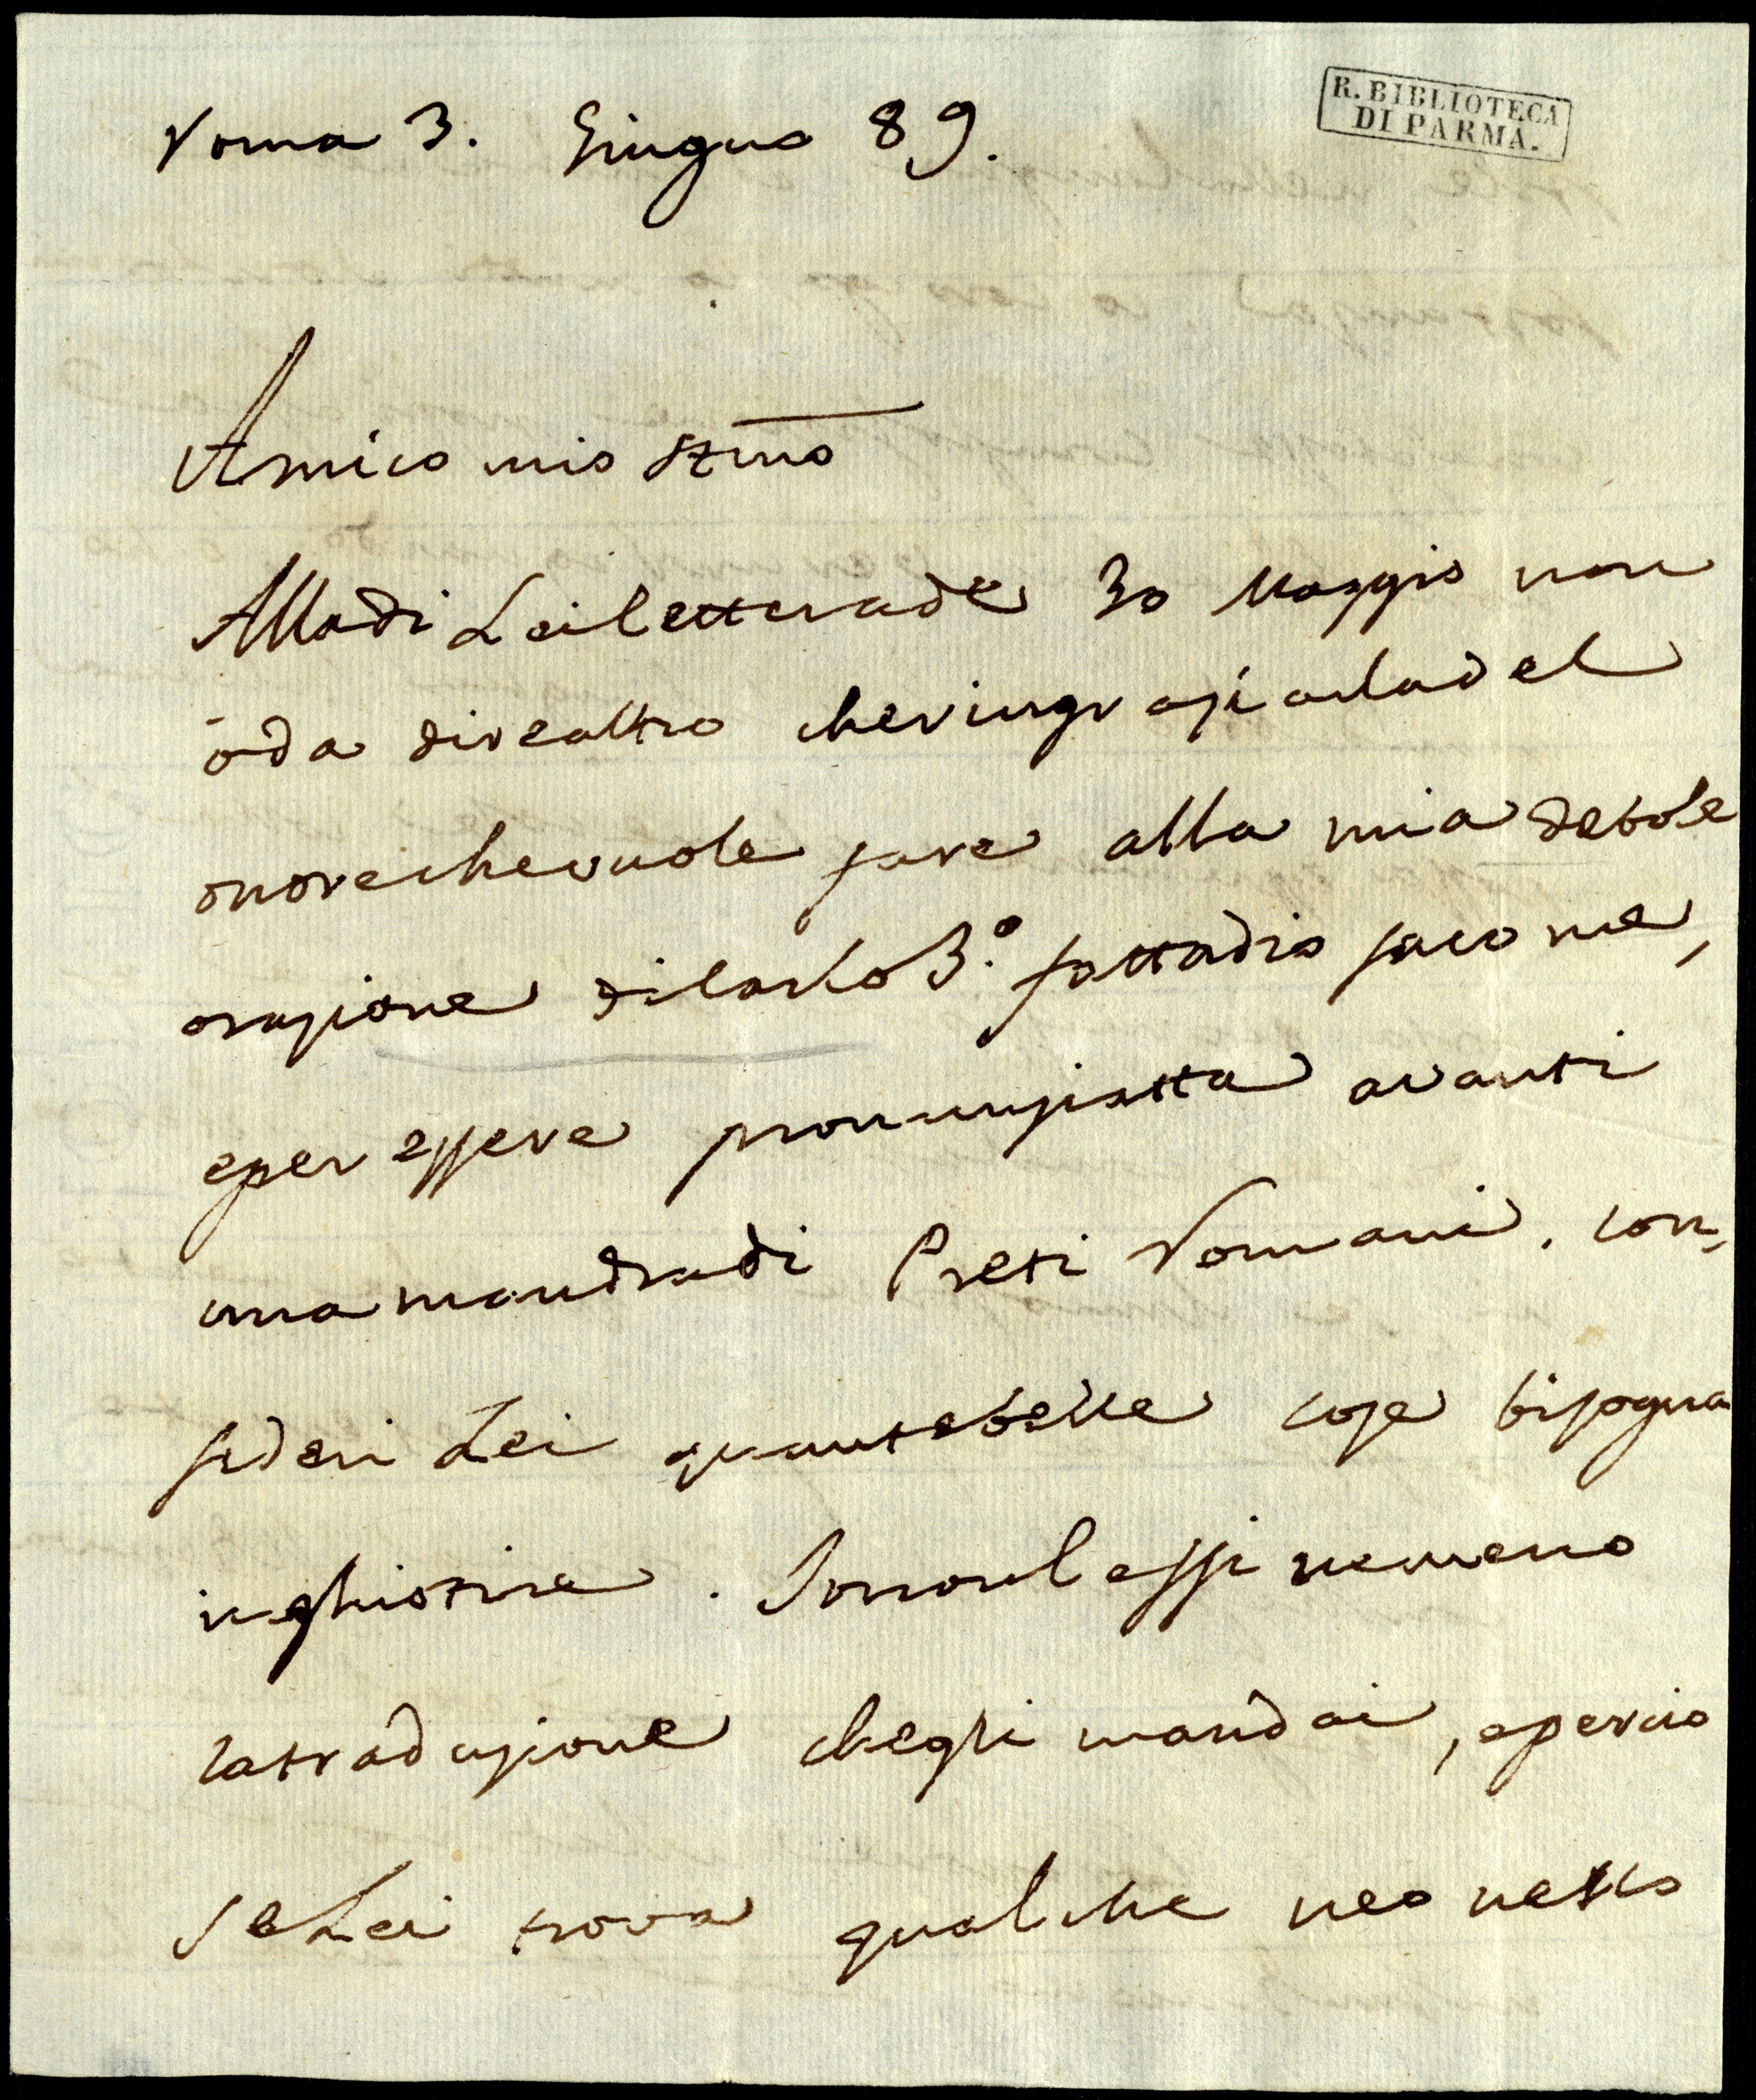 R. BIBLIOTECA
DI PARMA.
Roma 3. Giugno 89.
Amico mio Stimo
Alla di Lei lettera de 30 Maggio non
ò da dire altro che ringraziarla del
onore che vuole fare alla mia debole
orazione di Carlo 3.º fatta dio sa come,
e per essere pronunziatta avanti
una mandra di Preti Romani. Con,
sideri Lei quante belle cose bisogna
inghiotire. Io non lessi nemeno
la traduzione che gli mandai, e percio
se Lei trova qualche neo nello